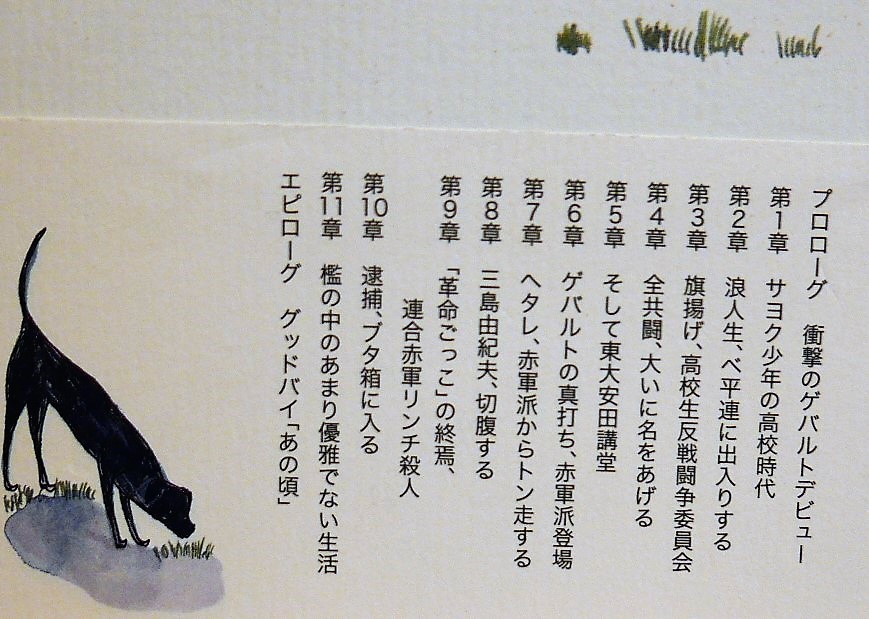 プロローグ 衝撃のゲバルトデビュー
第1章 サヨク少年の高校時代
第2章 浪人生、ベ平連に出入りする
第3章 旗揚げ、高校生反戦闘争委員会
第4章 全共闘、大いに名をあげる
第5章 そして東大安田講堂
第6章 ゲバルトの真打ち、赤軍派登場
第7章 ヘタレ、赤軍派からトン走する
第8章 三島由紀夫、切腹する
第9章 「革命ごっこ」の終焉、
連合赤軍リンチ殺人
第10章 逮捕、ブタ箱に入る
第11章 檻の中のあまり優雅でない生活
エピローグ グッドバイ「あの頃」